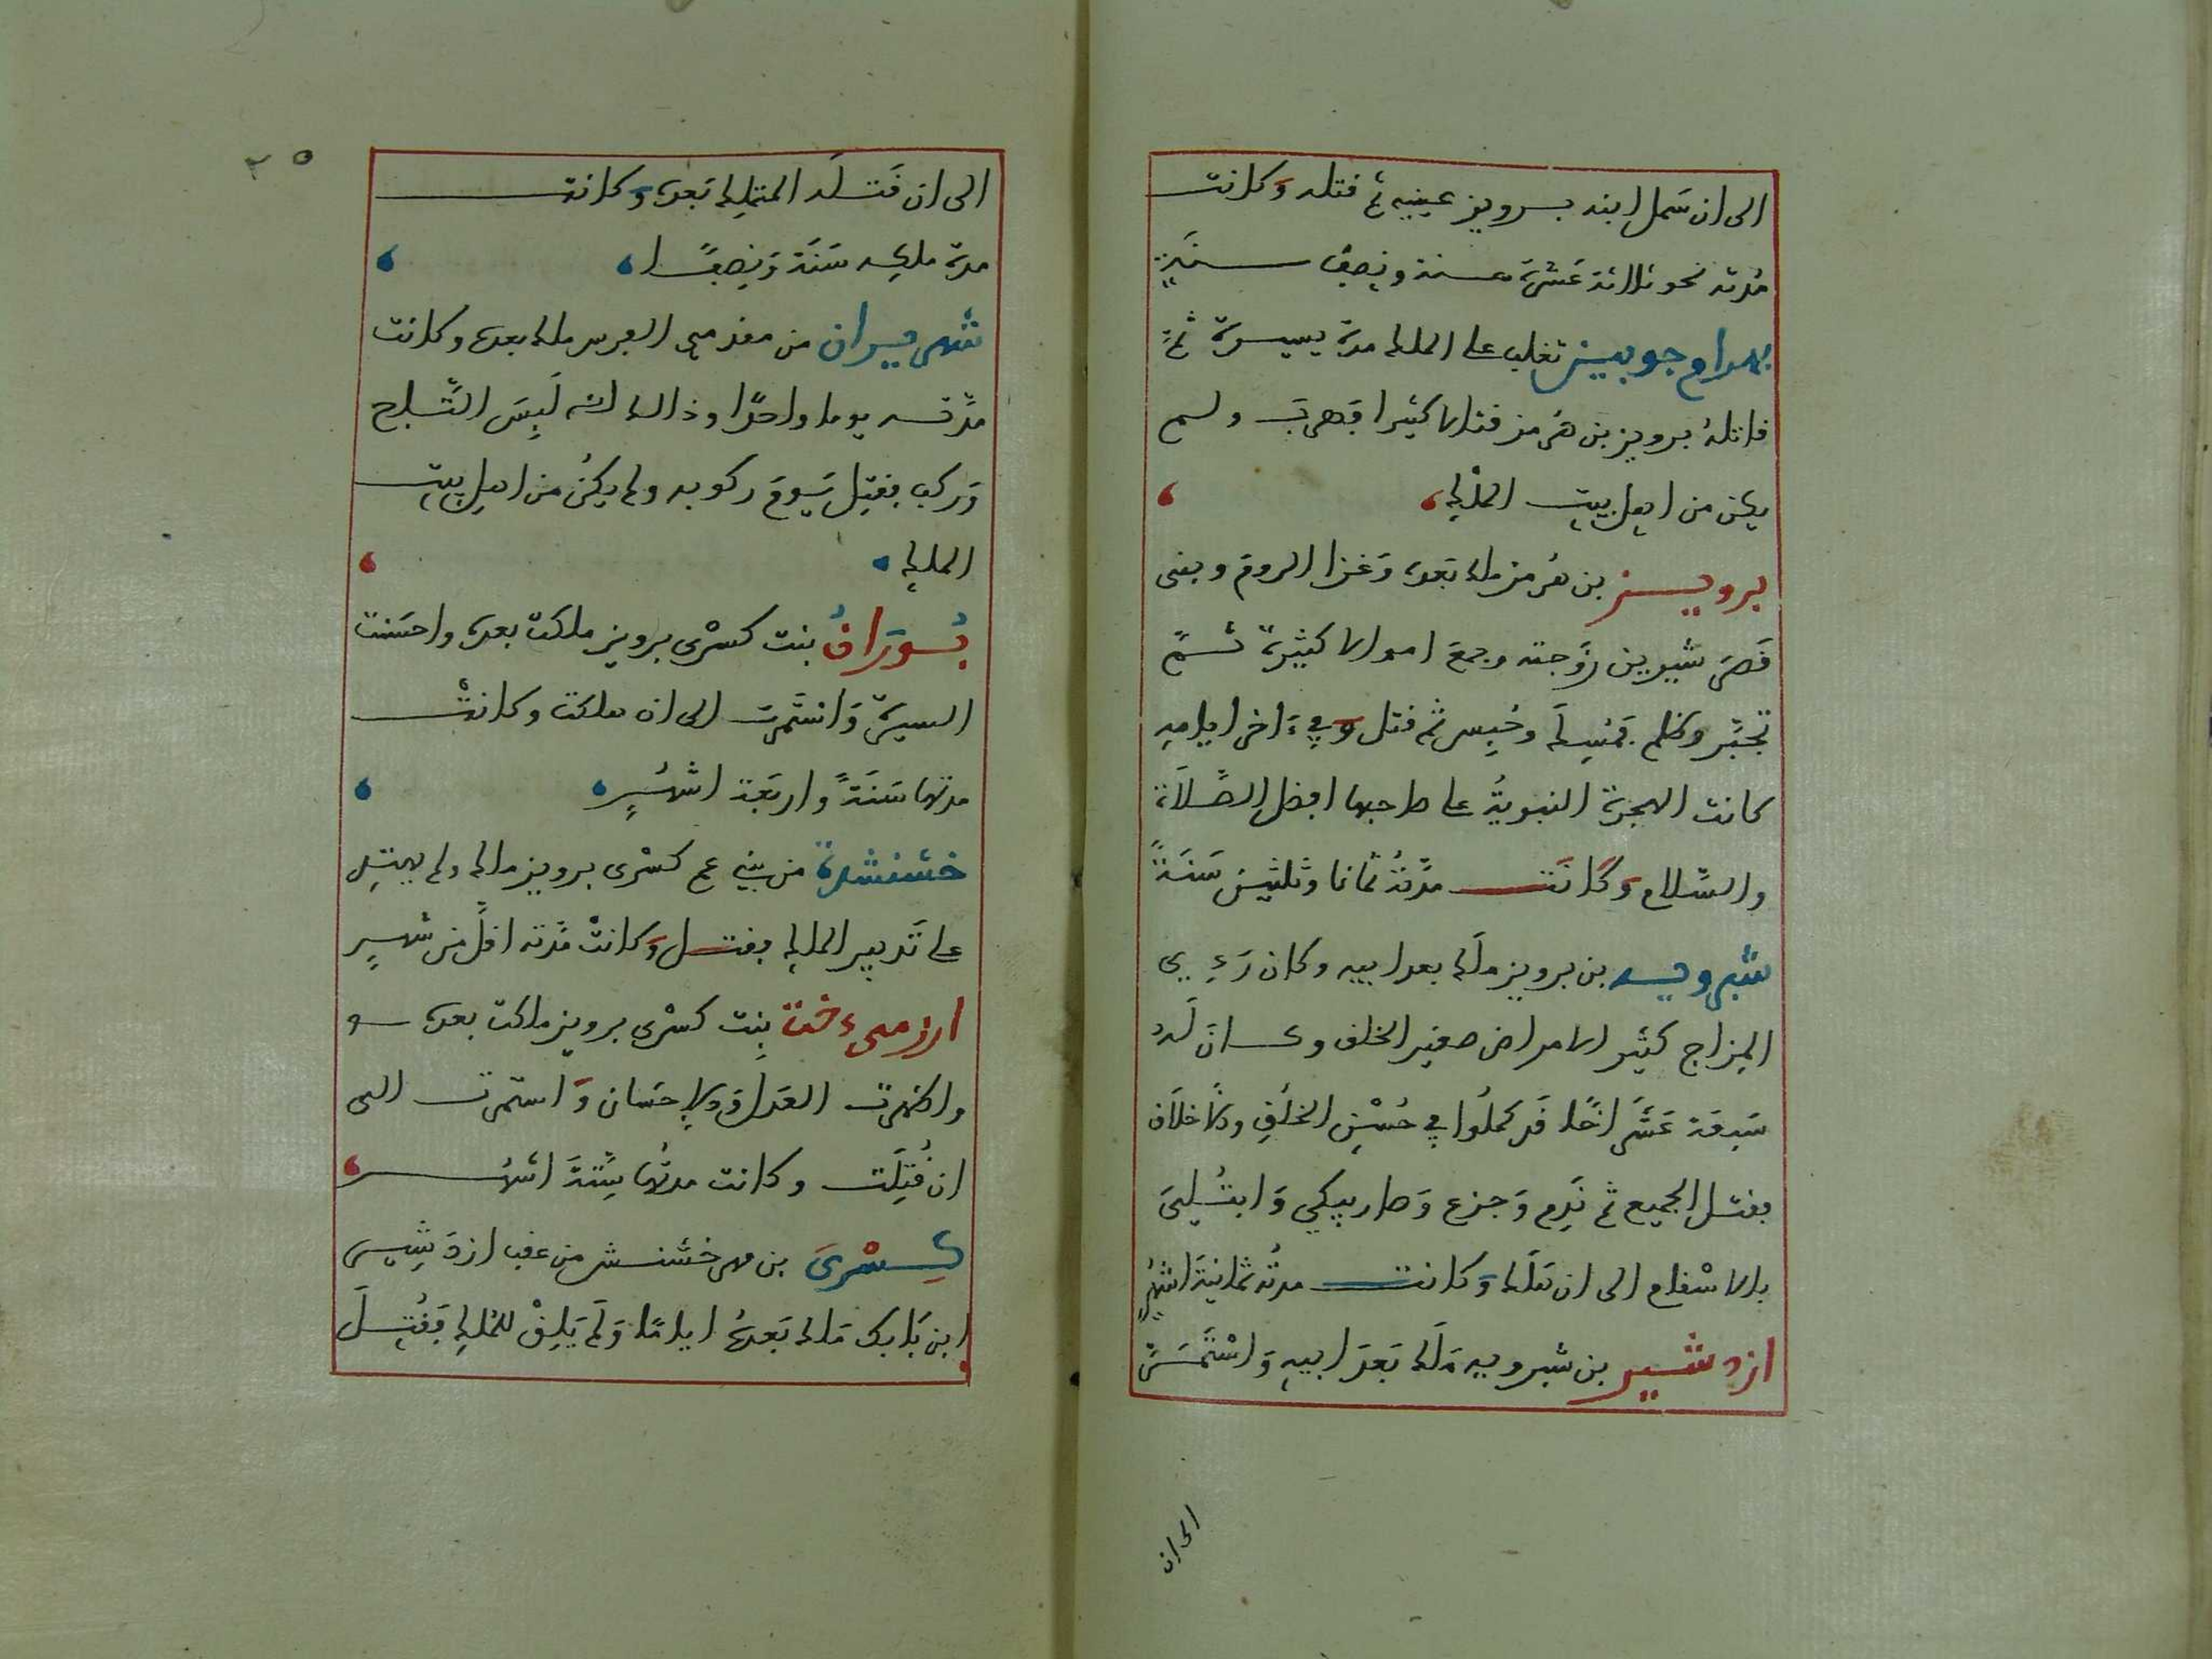 الى ان سَمل ابنه برويز عينيه ثم قتله وَكانت
مُدته نحو ثلاثة عَشَرَة سنة ونِصف سنَةٍ
بهرام جوبين تغلب على الملك مدة يسيرة ثمَّ
قاتلهُ برويز بن هُرمز قتالا كثيرا فهَربَ ولم
يكن من اهل بيت المُلْكِ
برويز بن هُرمز ملك بَعده وَغزا الروم وبنى
قَصرَ شيرين زَوجته وجمعَ اموالا كثيرة ثمَّ
تجبَّر وظلم فمُسِكَ وحُبِس ثم قتل وَفي ءَاخر ايامه
كانت الهجرة النبويةُ على صاحبها افضل الصَّلاَة
والسّلام وَكَانَت مدَّتهُ ثمانا وثلثين سَنَةً
شيرويه بن برويز ملَك بعد ابيه وكان رَدِيي
المِزاج كثير الامراض صغير الخلق وكان لَه
سَبعَة عَشَر اخًا قَد كملُوا في حُسْن الخلْقِ والاَخلاَق
فقتل الجميع ثم نَدِم وَجزع وَصار يبكي وَابتُلِيَ
بالاسْقام الى ان هَلَك وَكانت مدتُه ثمانية اشهُرٍ
ازدشير بن شيرويه مَلَك بَعدَ ابيهِ وَاسْتَمَرَّ
الى ان
٢٥
الى ان قَتلَه المتملِك بَعده وَكانت
مدة ملكِه سَنَة وَنِصفًا
شهرميران من مقدمي الفرس ملك بعده وكانت
مدَّته يوما واحدًا وذالك انه لَبِسَ التَّاج
وَركب فقتِل يَومَ ركوبه ولم يكُن من اهل بيتِ
الملكِ
بُورَانُ بنت كسْرى برويز ملكت بعده واحسَنت
السيرةَ وَاستَمرت الى ان هلكت وكانتْ
مدتها سَنَةً واربَعَة اشهُرٍ
خشنشدة من بني عم كسْرى برويز ملك ولم يهتدِ
على تَدبير الملكِ فقتل وَكانتْ مُدته اقلَّ من شهرٍ
ارزميدخت بِنت كسْرى برويز ملكت بعده
واظهرت العَدل وَالاِحسَان وَاستمرت الى
ان قُتِلَت وكانت مدتُها سِتَّةَ اشهُر
كِسْرَى بن مهرخشنش من عقب ازدَشِير
ابن بَابك مَلك بَعدهُ ايامًا وَلَم يَلِقْ للمُلكِ فَقُتِلَ